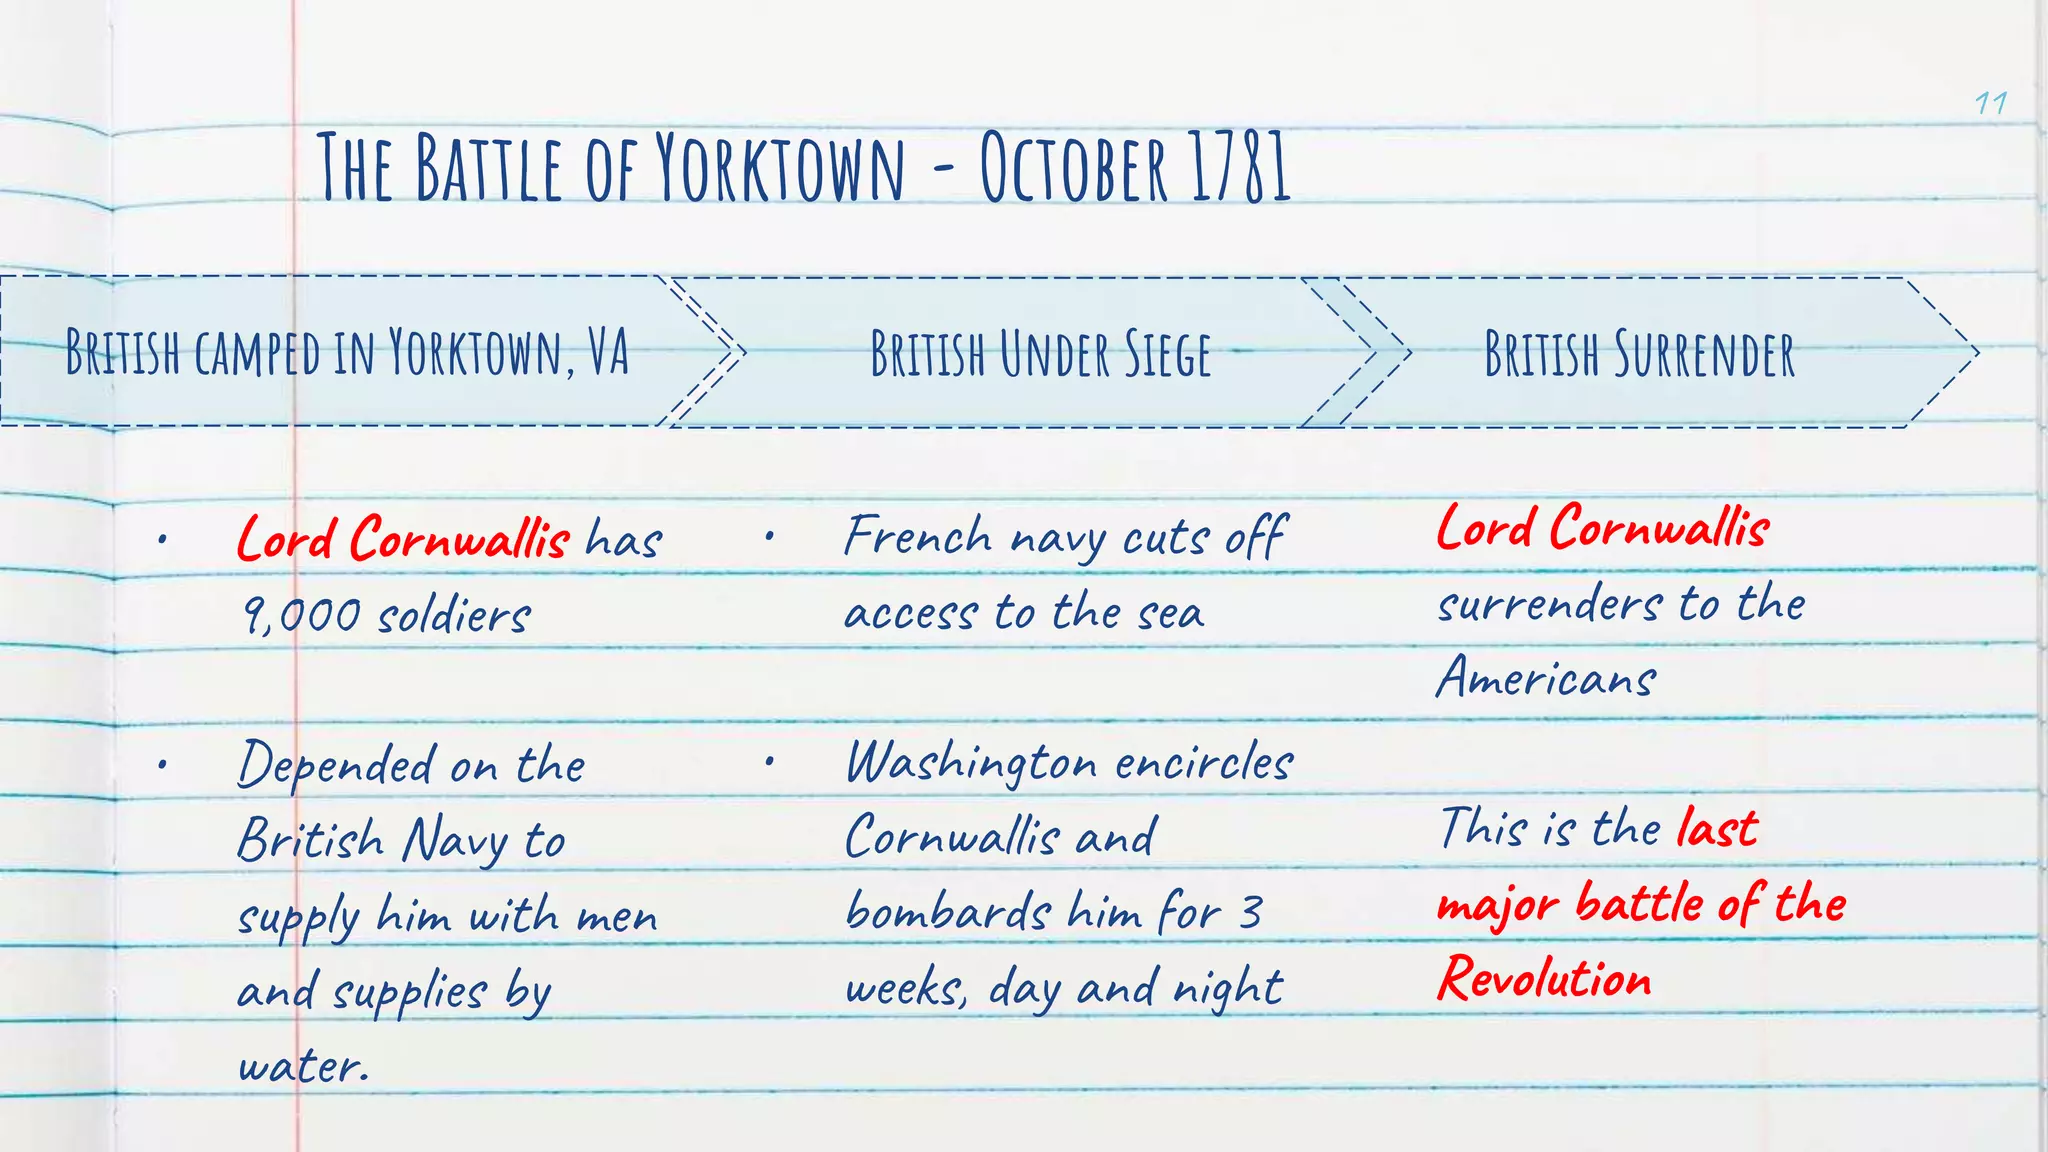 11
The Battle of Yorktown - October 1781
British camped in Yorktown, VA
British Under Siege
British Surrender
• Lord Cornwallis has
9,000 soldiers
• Depended on the
British Navy to
supply him with men
and supplies by
water.
• French navy cuts off
access to the sea
• Washington encircles
Cornwallis and
bombards him for 3
weeks, day and night
Lord Cornwallis
surrenders to the
Americans
This is the last
major battle of the
Revolution